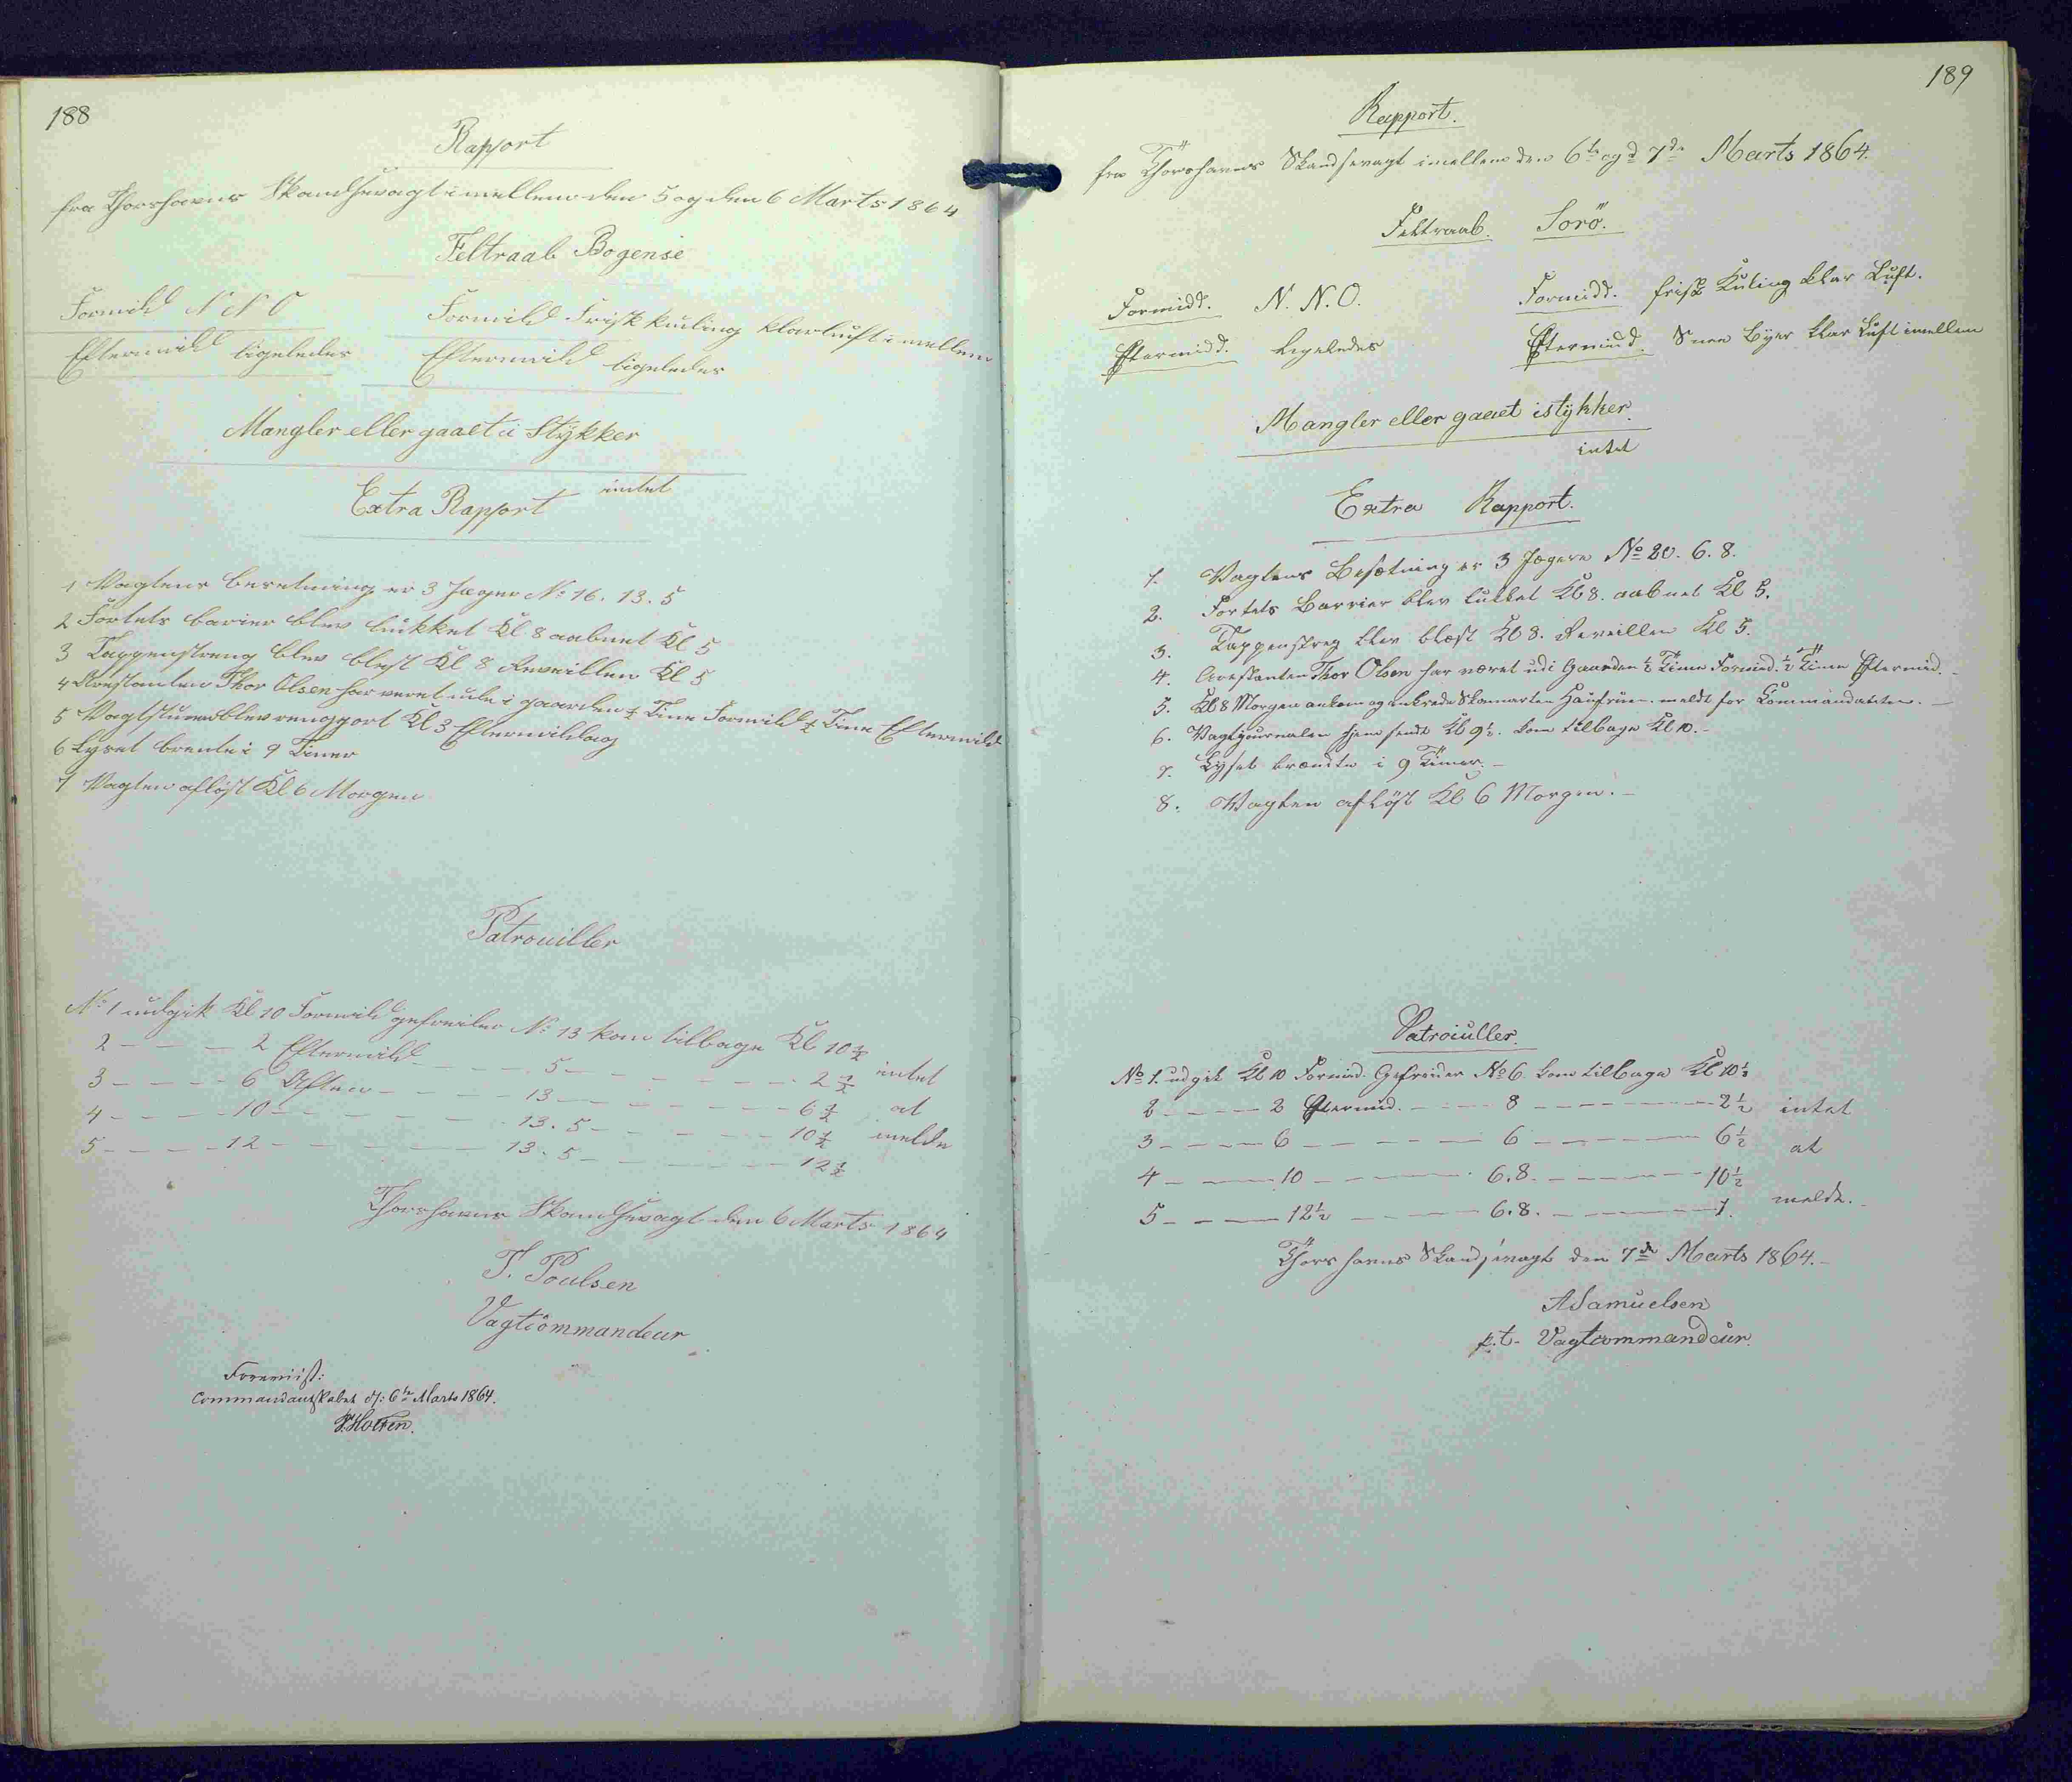 188
Rapport
fra Thorshavns Skandsevagt imellem den 5 og den 6 Marts 1864
Feltraab Bogense
Formidd N N O Formidd Frisk kuling klarluft imellem
Eftermidd ligeledes Eftermidd ligeledes
Mangler eller gaaet i Stykker
intet
Extra Rapport
1 Vagtens besetning er 3 Jæger No 16. 13. 5
2 Fortets barier blev lukket Kl 8 aabnet Kl 5
3 Tappenstreng blev blest Kl 8 Reveillen Kl 5
4 Arestanten Thor Olsen har veret ude i gaarden ½ Time Formidd ½ Time Eftermidd
5 Vagtstuen blev rengjort Kl 3 Eftermiddag
6 Lyset brente i 9 Timer
7 Vagten afløst Kl 6 Morgen
Patrouiller
No 1 udgik Kl 10 Formidd gefreider No 13 kom tilbage Kl 10½
2 - - - 2 Eftermidd - - - 5 - - - - - - 2½ intet
3 - - - - 6 Aften - - - - 13 - - - - - - 6½ at
4 - - - - 10 - - - - - 13. 5 - - - - - 10½ melde
5 - - - - 12 - - - - - 13. 5 - - - - - 12½
Thorshavns Skandsevagt den 6 Marts 1864
T. Poulsen
Vagtcommandeur
Foreviist:
Commandantskabet d: 6te Marts 1864.
Holten.
189
Rapport.
fra Thorshavns Skandsevagt imellem den 6te og d 7de Marts 1864.
Feltraab. Sorö.
Formidd. N. N. O. Formidd. frisk Kuling klar Luft.
Eftermidd. ligeledes Eftermidd. Snee Byer klar Luft imellem
Mangler eller gaaet istykker
intet
Extra Rapport.
1. Vagtens Besætning er 3 Jægere No 20. 6. 8.
2. Fortets Barrier blev lukket Kl 8. aabnet Kl 5.
3. Tappenstreg blev blæst Kl 8. Reveillen Kl 5.
4. Arestanten Thor Olsen har været udi Gaarden ½ Time Formid. ½ Time Eftermid.
5. Kl 8 Morgen ankom og ankrede meldt for Commandanten.
6. Vagtjournalen hjem sendt Kl 9½. kom tilbage Kl 10.
7. Lyset brændte i 9 Timer.
8. Vagten afløst Kl 6 Morgen.
Patroiuller.
No 1. udgik Kl 10 Formid. Gefreider No 6. kom tilbage Kl 10½
2 - - - - 2 Eftermid. - - - 8 - - - - - - 2½ intet
3 - - - - 6 - - - - - 6 - - - - - 6½ at
4 - - - - 10 - - - - 6. 8. - - - - - 10½
5 - - - - 12½ - - - - 6. 8. - - - - - 1. melde.
Thorshavns Skandsevagt den 7de Marts 1864.
A Samuelsen
p. t. Vagtcommandeur.